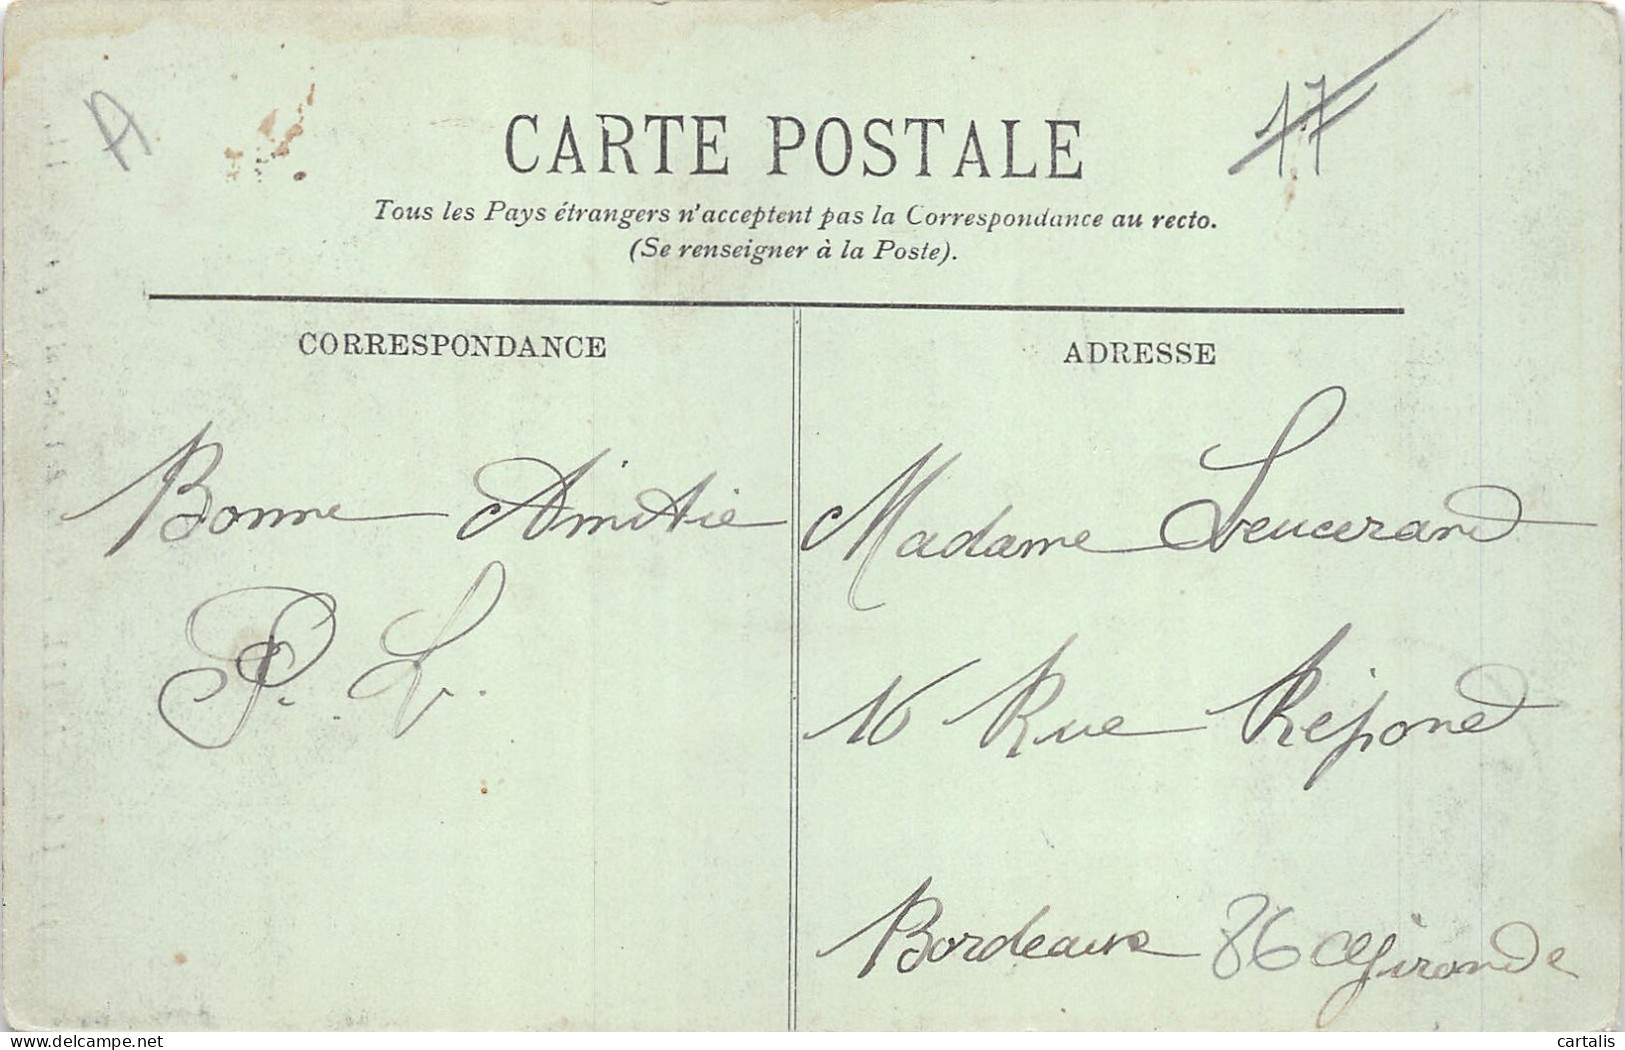 A
17
CARTE POSTALE
Tous les Pays étrangers n'acceptent pas la Correspondance au recto.
(Se renseigner à la Poste).
CORRESPONDANCE
Bonne Amitie
P. L.
ADRESSE
Madame Leucerand
16 Rue Répond
Bordeaux 86 Gironde
delcampe.net
cartalis